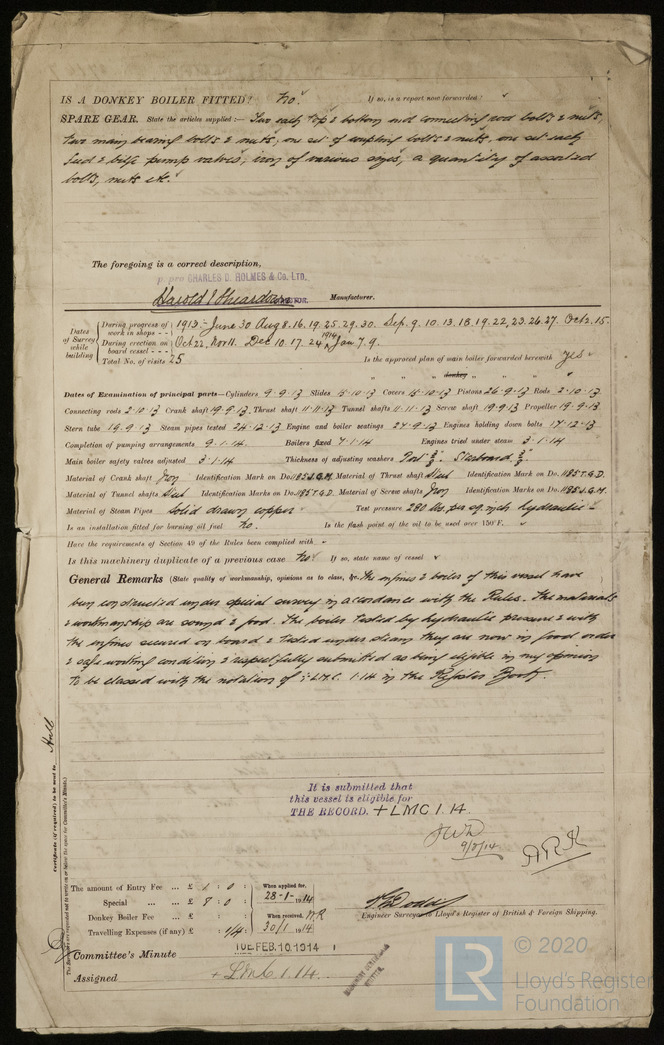 IS A DONKEY BOILER FITTED? No. If so, is a report now forwarded?
SPARE GEAR. State the articles supplied:— Two each top & bottom end connecting rod bolts & nuts,
two main bearing bolts & nuts, one set of coupling bolts & nuts, one set each
feed & bilge pump valves, iron of various sizes, a quantity of assorted
bolts, nuts etc.
The foregoing is a correct description,
CHARLES D. HOLMES & Co. LTD.
Harold Manufacturer.
Dates of Survey while building
During progress of work in shops - - 1913:- June 30 Aug 8. 16. 19. 25. 29. 30. Sep. 9. 10. 13. 18. 19. 22, 23. 26. 27. Oct 2. 15.
During erection on board vessel - - - Oct 22. Nov 11. Dec 10. 17. 24 1914 Jan 7. 9.
Total No. of visits 25 Is the approved plan of main boiler forwarded herewith yes
" " " donkey " " "
Dates of Examination of principal parts—Cylinders 9-9-13 Slides 15-10-13 Covers 15-10-13 Pistons 26-9-13 Rods 2-10-13
Connecting rods 2-10-13 Crank shaft 19.9.13 Thrust shaft 11-11-13 Tunnel shafts 11-11-13 Screw shaft 19.9.13 Propeller 19.9.13
Stern tube 19.9.13 Steam pipes tested 24-12-13 Engine and boiler seatings 27-9-13 Engines holding down bolts 17-12-13
Completion of pumping arrangements 9-1-14. Boilers fixed 7-1-14 Engines tried under steam 3-1-14
Main boiler safety valves adjusted 3-1-14 Thickness of adjusting washers Port Starboard
Material of Crank shaft Iron Identification Mark on Do. 1185 J.G.M. Material of Thrust shaft Steel Identification Mark on Do. 1185 T.G.D.
Material of Tunnel shafts Steel Identification Marks on Do. 1185 T.G.D. Material of Screw shafts Iron Identification Marks on Do. 1185 J.G.M.
Material of Steam Pipes Solid drawn copper Test pressure 280 lbs. per sq. inch hydraulic
Is an installation fitted for burning oil fuel no. Is the flash point of the oil to be used over 150°F.
Have the requirements of Section 49 of the Rules been complied with
Is this machinery duplicate of a previous case No If so, state name of vessel
General Remarks (State quality of workmanship, opinions as to class, &c. The engines & boiler of this vessel have
been constructed under special survey in accordance with the Rules. The materials
& workmanship are sound & good. The boiler tested by hydraulic pressure & with
the engines secured on board & tested under steam they are now in good order
& safe working condition & respectfully submitted as being eligible in my opinion
to be classed with the notation of + LMC 1.14 in the Register Book.
Certificate (if required) to be sent to Hull
It is submitted that
this vessel is eligible for
THE RECORD. + LMC 1.14.
9/2/14
The amount of Entry Fee ... £ 1 : 0 :
Special ... £ 8 : 0 :
Donkey Boiler Fee ... £ : :
Travelling Expenses (if any) £ : 4/4 :
When applied for, 28-1-1914
When received, 30/1 1914
Engineer Surveyor to Lloyd's Register of British & Foreign Shipping.
Committee's Minute TUE. FEB. 10. 1914
Assigned + LMC 1.14.
LR © 2020
Lloyd's Register
Foundation